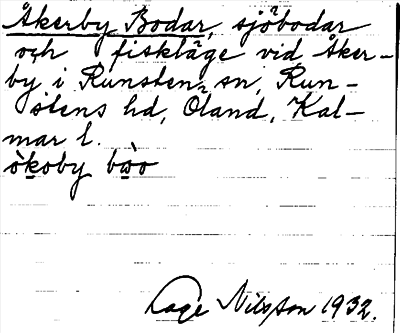 Åkerby Bodar, sjöbodar
och fiskläge vid Åker-
by i Runstens sn, Run-
stens hd, Öland, Kal-
mar l.
òkoby bòo
Åage Nilsson 1932.